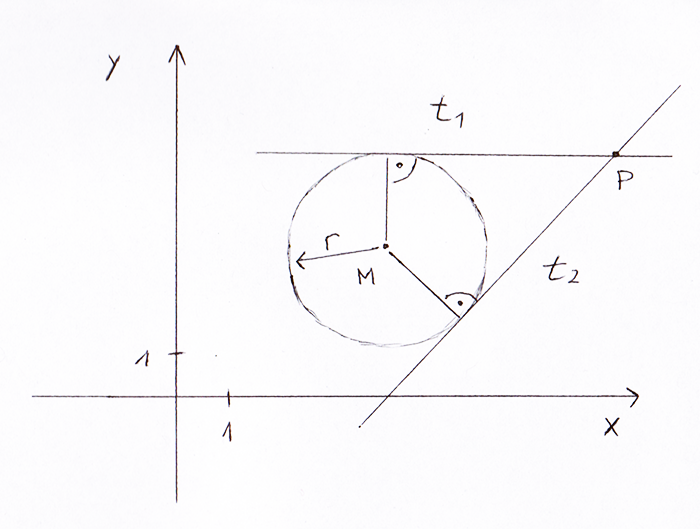 y
t₁
P
r
M
t₂
1
1
x